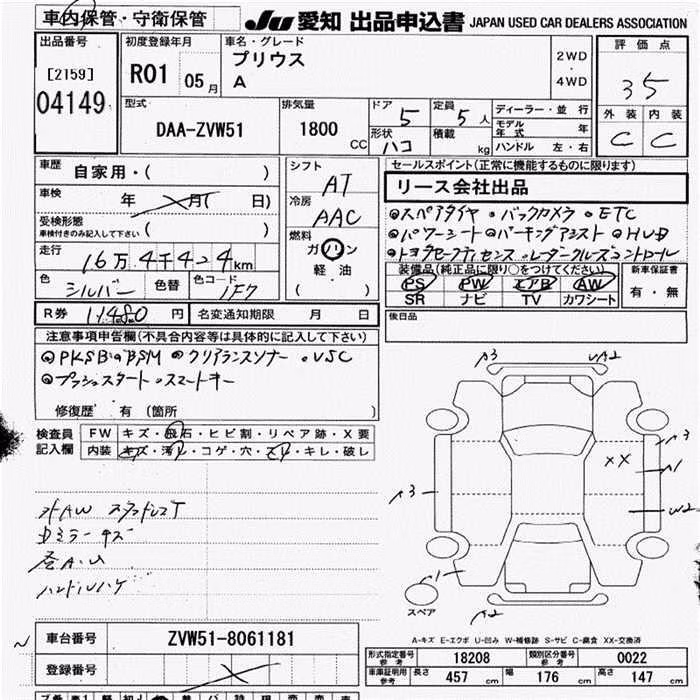 車内保管・守衛保管
JU 愛知 出品申込書 JAPAN USED CAR DEALERS ASSOCIATION
出品番号
[2159]
04149
初度登録年月
R01 05月
車名・グレード
プリウス
A
2WD
・
4WD
評価点
35
外装 内装
C C
型式
DAA-ZVW51
排気量
1800 CC
ドア 5
定員 5人
形状 ハコ
積載 kg
ディーラー・並行
モデル年式 年
ハンドル 左・右
車歴 自家用・( )
車検 年 月( 日)
受検形態
車検付きのみ記入して下さい ( )
走行 16万4千424km
色 シルバー
色替
色コード 1F7
シフト AT
冷房 AAC
燃料
ガソリン
軽油
( )
セールスポイント(正常に機能するものに限ります)
リース会社出品
◎スペアタイヤ ◎バックカメラ ◎ETC
◎パワーシート ◎パーキングアシスト ◎HUD
◎トヨタセーフティセンス ◎レーダークルーズコントロール
装備品(純正品に限り○をつけてください)
PS PW エアB AW
SR ナビ TV カワシート
新車保証書
有・無
R券 11480 円
名変通知期限 月 日
後日品
注意事項申告欄(不具合内容等は具体的に記入して下さい)
◎PKSB ◎BSM ◎クリアランスソナー ◎VSC
◎プッシュスタート ◎スマートキー
修復歴 有 (箇所 )
検査員記入欄
FW キズ・飛石・ヒビ割・リペア跡・X要
内装 キズ・汚レ・コゲ・穴・スレ・キレ・破レ
社外AW スタッドレスT
ハンドルハゲ
A3
A2
A3
A1
XX
W2
A3
A1
A2
スペア
A-キズ E-エクボ U-凹み W-補修跡 S-サビ C-腐食 XX-交換済
車台番号 ZVW51-8061181
登録番号
形式指定番号 参考 18208
類別区分番号 参考 0022
車庫証明用 参考 長さ 457 cm 幅 176 cm 高さ 147 cm